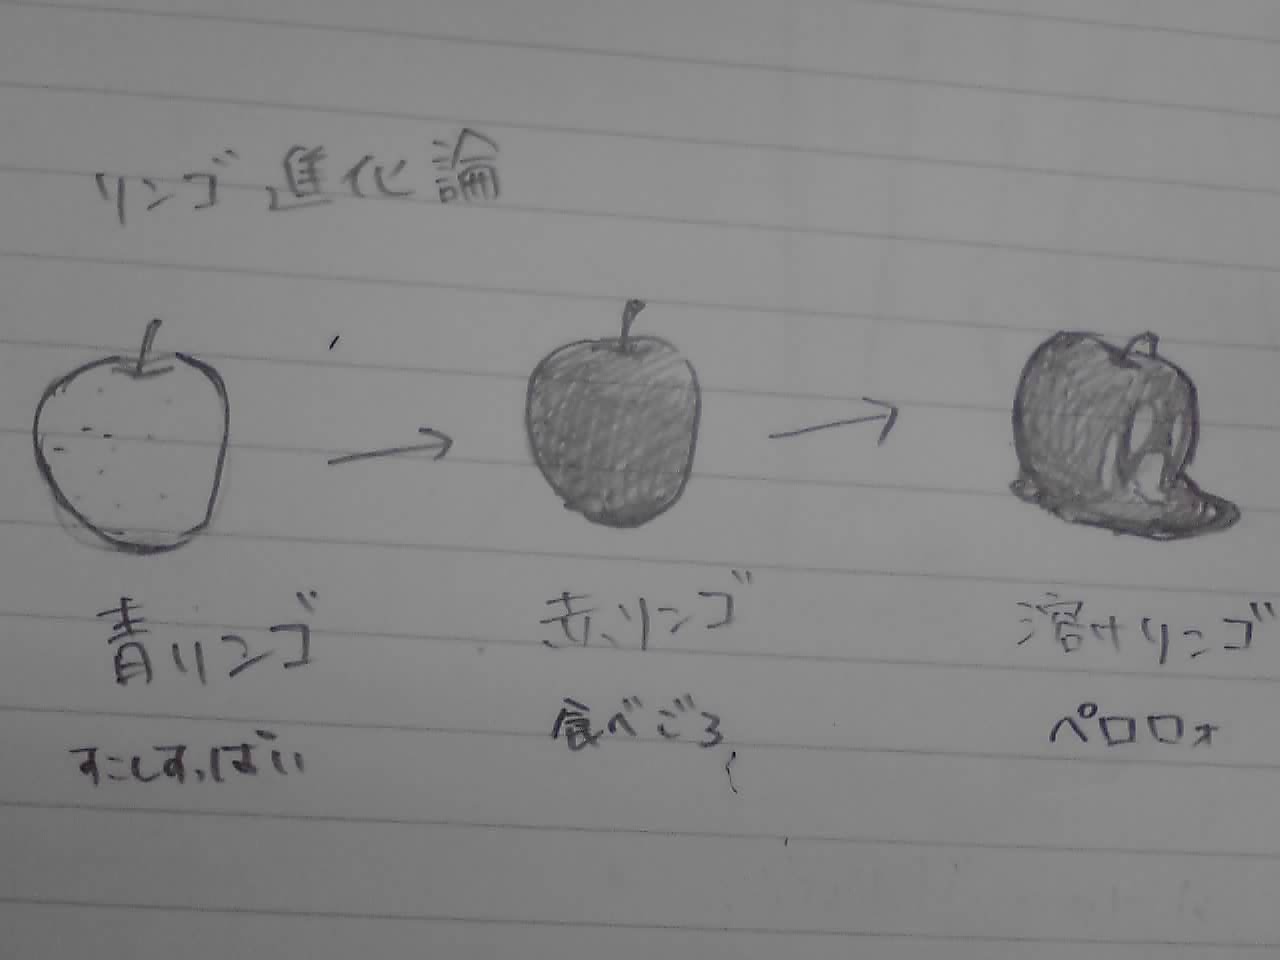 リンゴ進化論
青リンゴ
すこしすっぱい
赤リンゴ
食べごろ
溶けリンゴ
ペロロォ